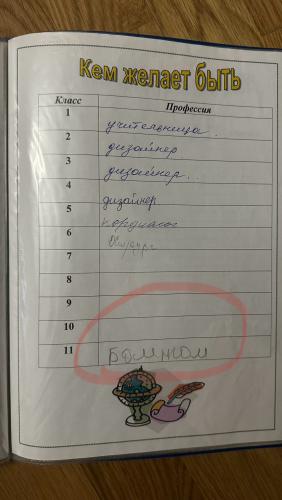 Кем желает быть
Класс Профессия
1 учительница.
2 дизайнер
3 дизайнер.
4 дизайнер
5 кардиолог
6 хирург
7
8
9
10
11 БОМЖОМ